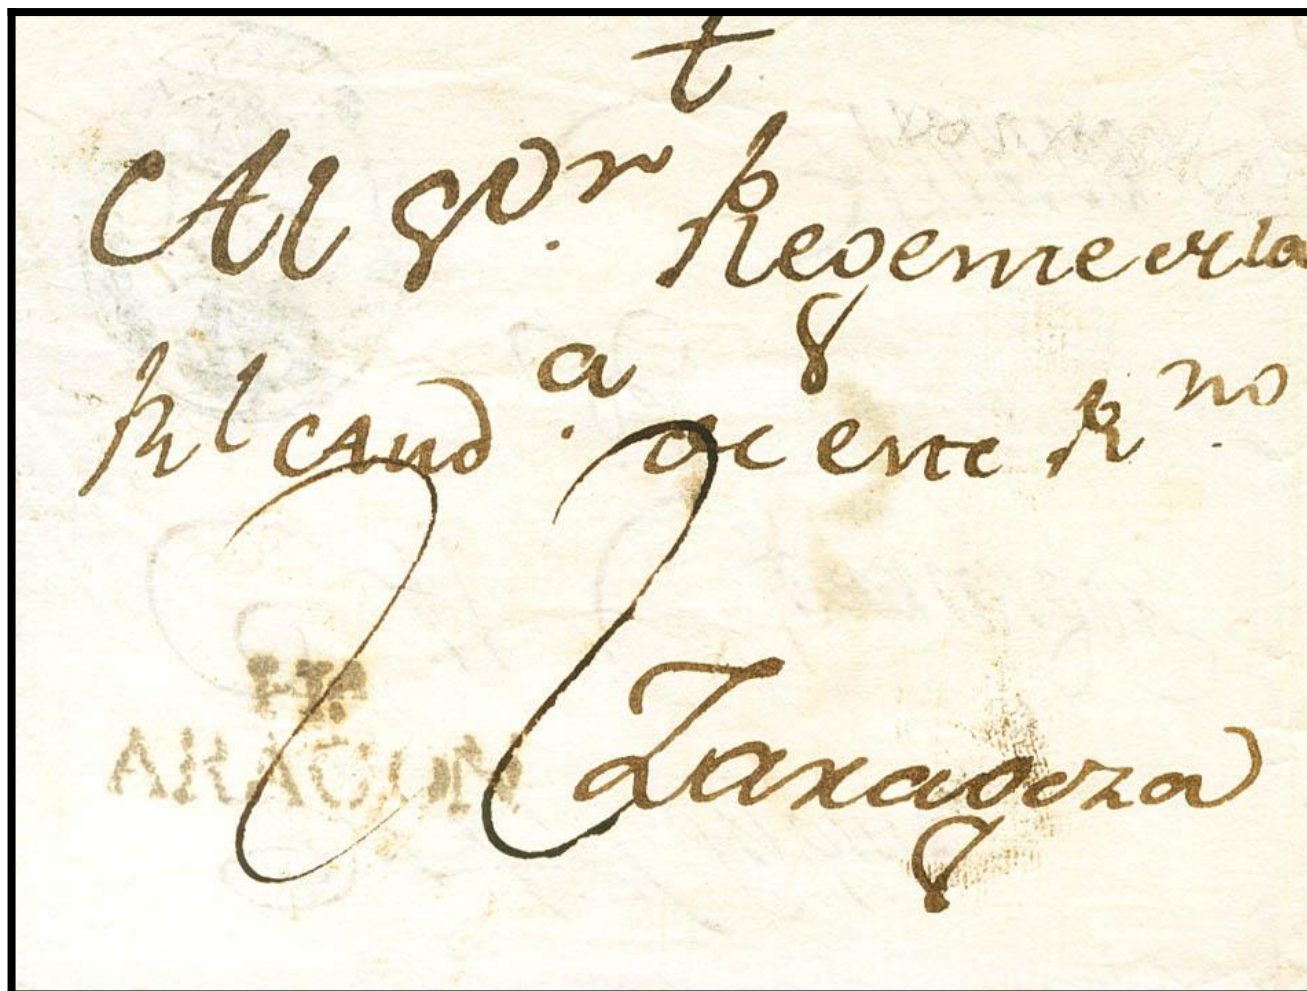 †
Al Sor. Regente de la
Rl Auda. de este Rno.
Hª
ARAGON
Zaragoza